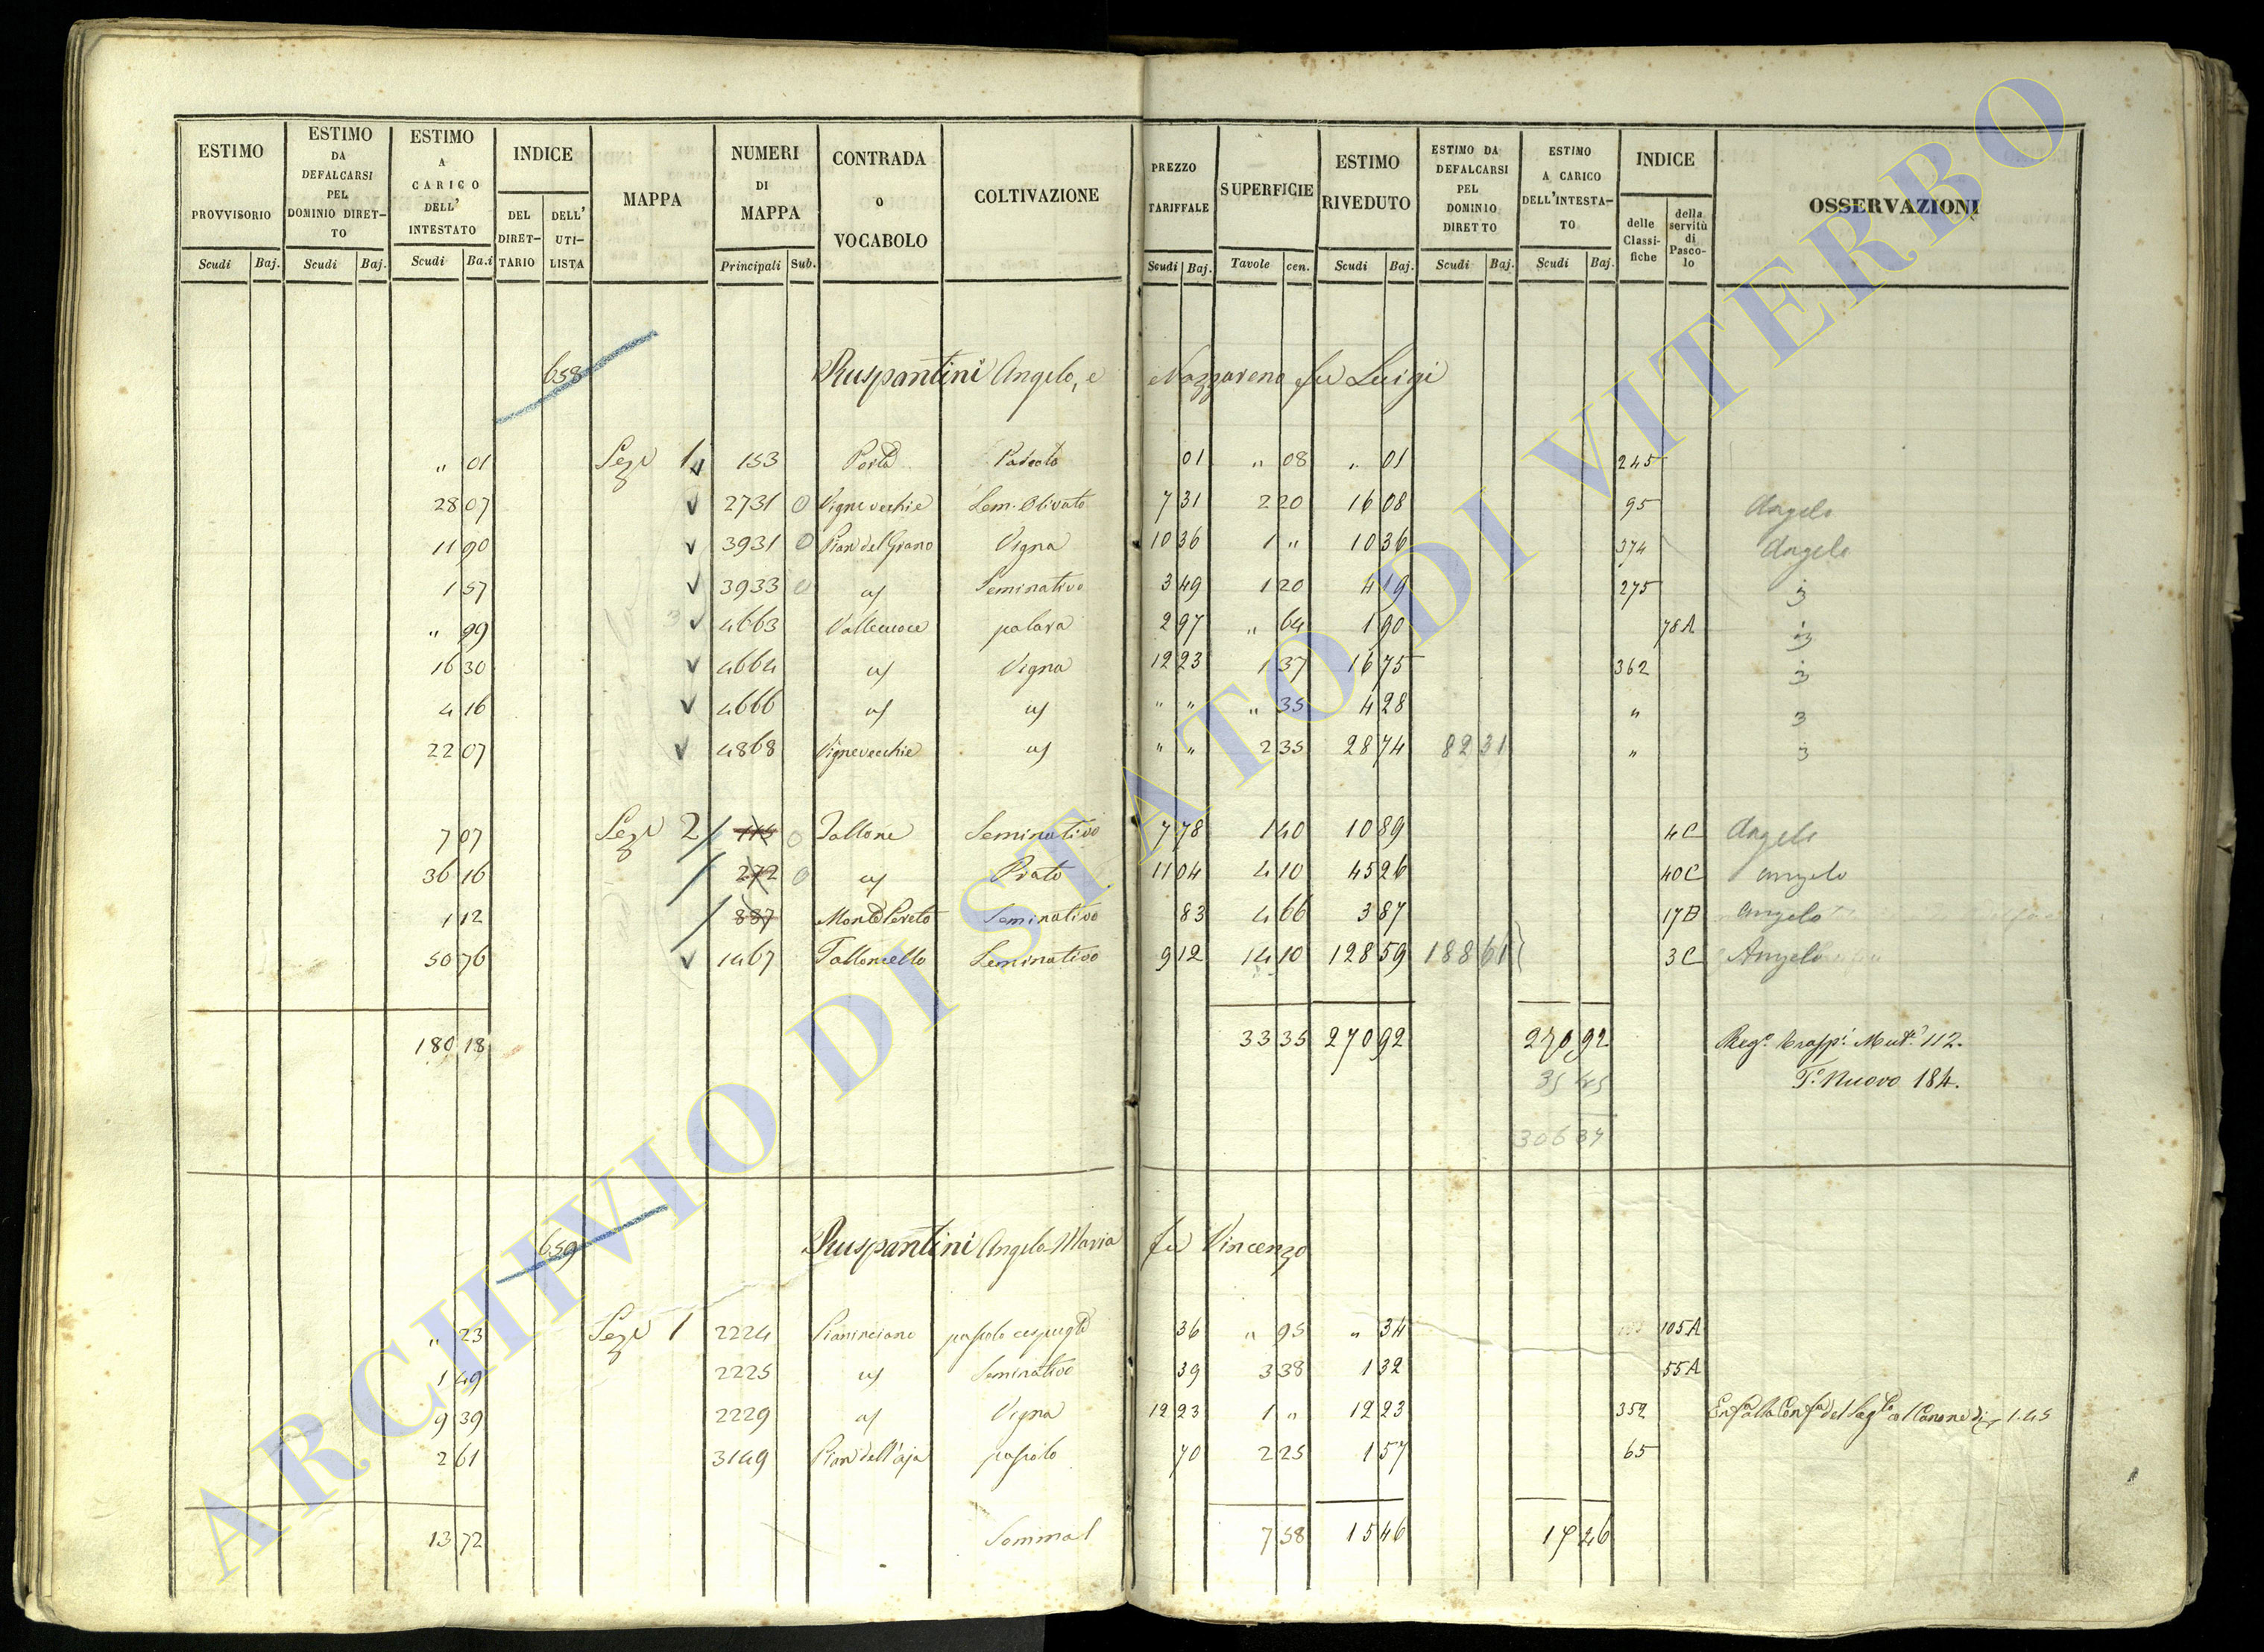 ESTIMO PROVVISORIO Scudi Baj.
ESTIMO DA DEFALCARSI PEL DOMINIO DIRET-TO Scudi Baj.
ESTIMO A CARICO DELL' INTESTATO Scudi Ba.i
INDICE DEL DIRET-TARIO DELL' UTI-LISTA
MAPPA
NUMERI DI MAPPA Principali Sub.
CONTRADA O VOCABOLO
COLTIVAZIONE
PREZZO TARIFFALE Scudi Baj.
SUPERFICIE Tavole cen.
ESTIMO RIVEDUTO Scudi Baj.
ESTIMO DA DEFALCARSI PEL DOMINIO DIRETTO Scudi Baj.
ESTIMO A CARICO DELL'INTESTA-TO Scudi Baj.
INDICE delle Classi-fiche della servitù di Pasco-lo
OSSERVAZIONI
658 Ruspantini Angelo, e Nazzareno fu Luigi
" 01 Seze 1 153 01 " 08 " 01 245
28 07 2731 0 Vignevecchie Sem. Olivato 7 31 2 20 16 08 95 Angelo
11 90 3931 0 Pian del Grano Vigna 10 36 1 " 10 36 374 Angelo
1 57 3933 0 Seminativo 3 49 1 20 4 19 275
" 99 4663 2 97 " 64 1 90 78A
16 30 4664 Vigna 12 23 1 37 16 75 362
4 16 4666 " " " 35 4 28 "
22 07 4868 Vignevecchie " " 2 35 28 74 82 31 "
7 07 Seze 2 0 Seminativo 7 78 1 40 10 89 4C Angelo
36 16 272 0 Prato 11 04 4 10 45 26 40C Angelo
1 12 887 Seminativo 83 4 66 3 87 17B Angelo
50 76 1467 Falloncello Seminativo 9 12 14 10 128 59 188 61 3C Angelo
180 18 33 35 270 92 270 92 112.
T.o Nuovo 184.
35 45
306 37
659 Ruspantini Angelo Maria fu Vincenzo
" 23 Seze 1 2224 36 " 95 " 34 105A
1 49 2225 Seminativo 39 3 38 1 32 55A
9 39 2229 Vigna 12 23 1 " 12 23 352 1.45
2 61 3149 Pian dell'aja pascolo 70 2 25 1 57 65
13 72 7 58 15 46 15 46
ARCHIVIO DI STATO DI VITERBO